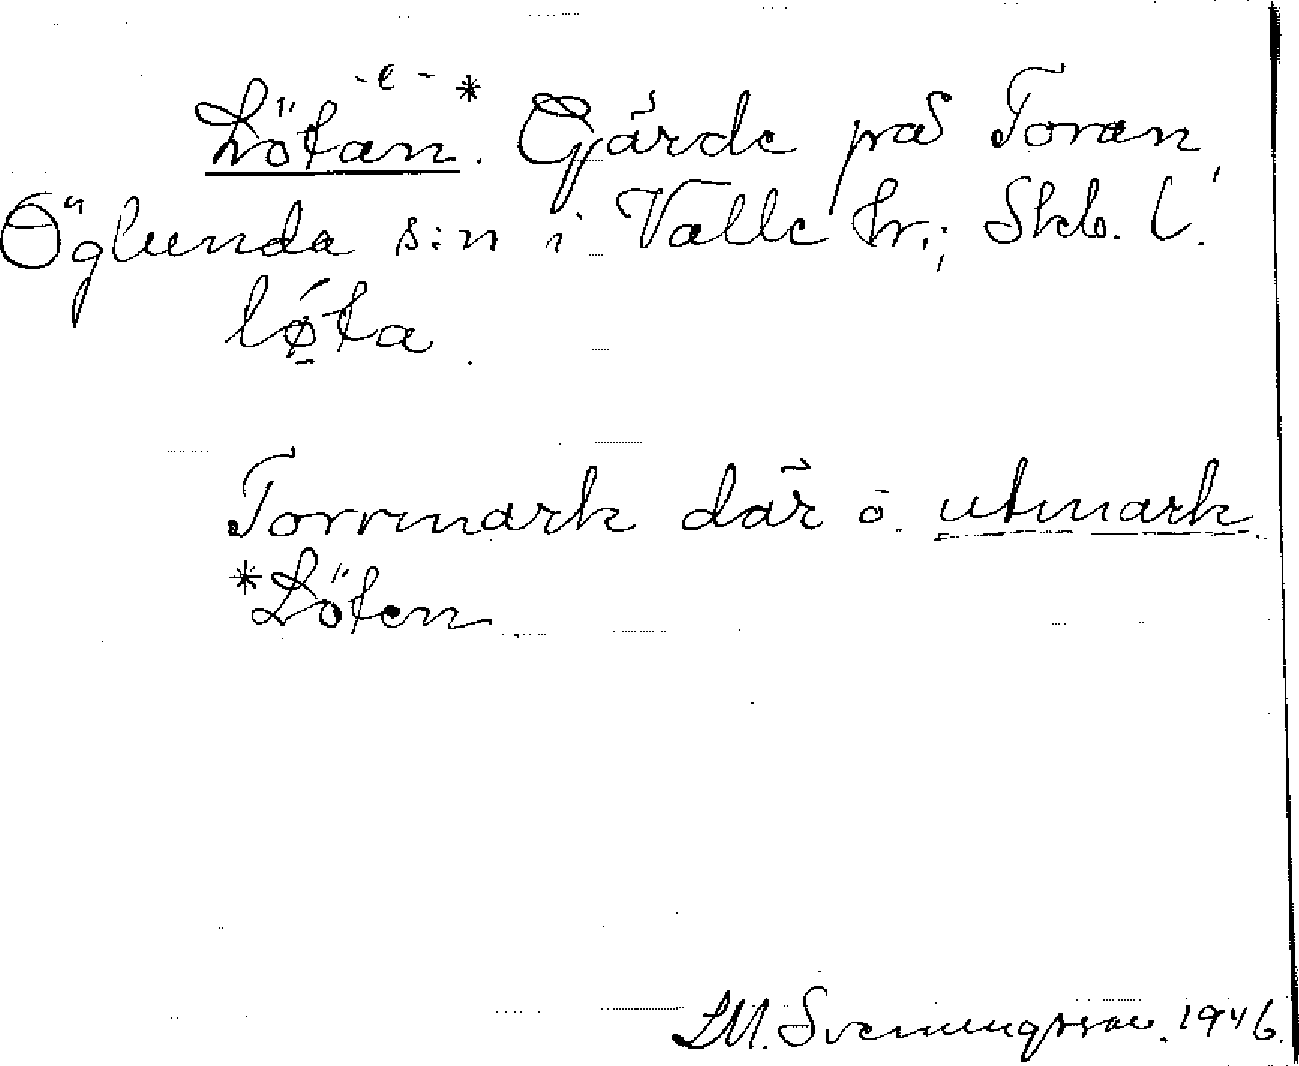 -e- *
Lötan. Gärde på Toran,
Öglunda s:n i Valle hr.; Skb. l.
lǿ̱ta.
Torvmark där o. utmark.
*Löten
LM. Svenungsson. 1946.